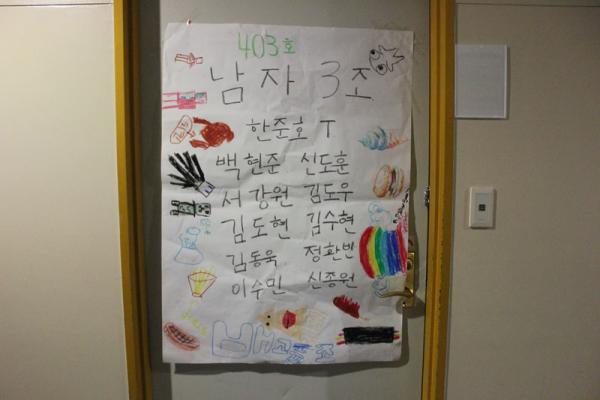 403호
남자 3조
한준호 T
백현준 신도훈
서강원 김도우
김도현 김수현
김동욱 정환빈
이수민 신종원